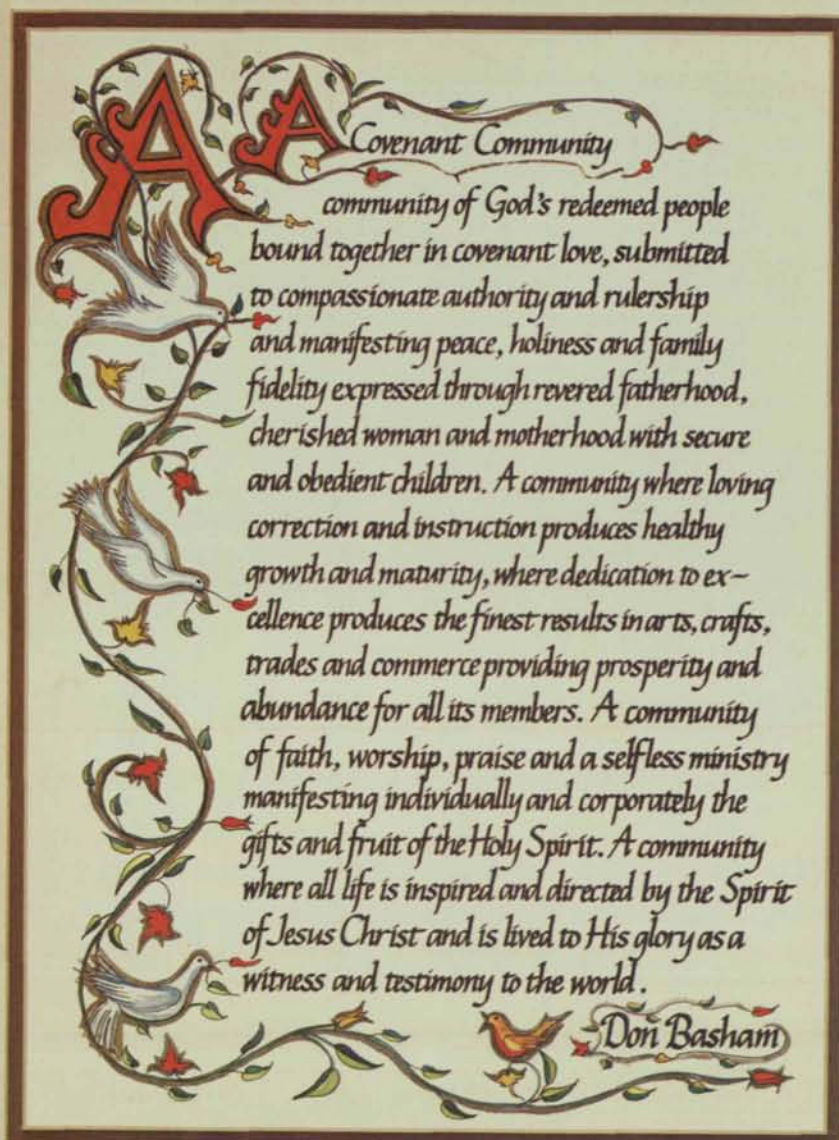 A Covenant Community
A community of God's redeemed people
bound together in covenant love, submitted
to compassionate authority and rulership
and manifesting peace, holiness and family
fidelity expressed through revered fatherhood,
cherished woman and motherhood with secure
and obedient children. A community where loving
correction and instruction produces healthy
growth and maturity, where dedication to ex-
cellence produces the finest results in arts, crafts,
trades and commerce providing prosperity and
abundance for all its members. A community
of faith, worship, praise and a selfless ministry
manifesting individually and corporately the
gifts and fruit of the Holy Spirit. A community
where all life is inspired and directed by the Spirit
of Jesus Christ and is lived to His glory as a
witness and testimony to the world.
Don Basham